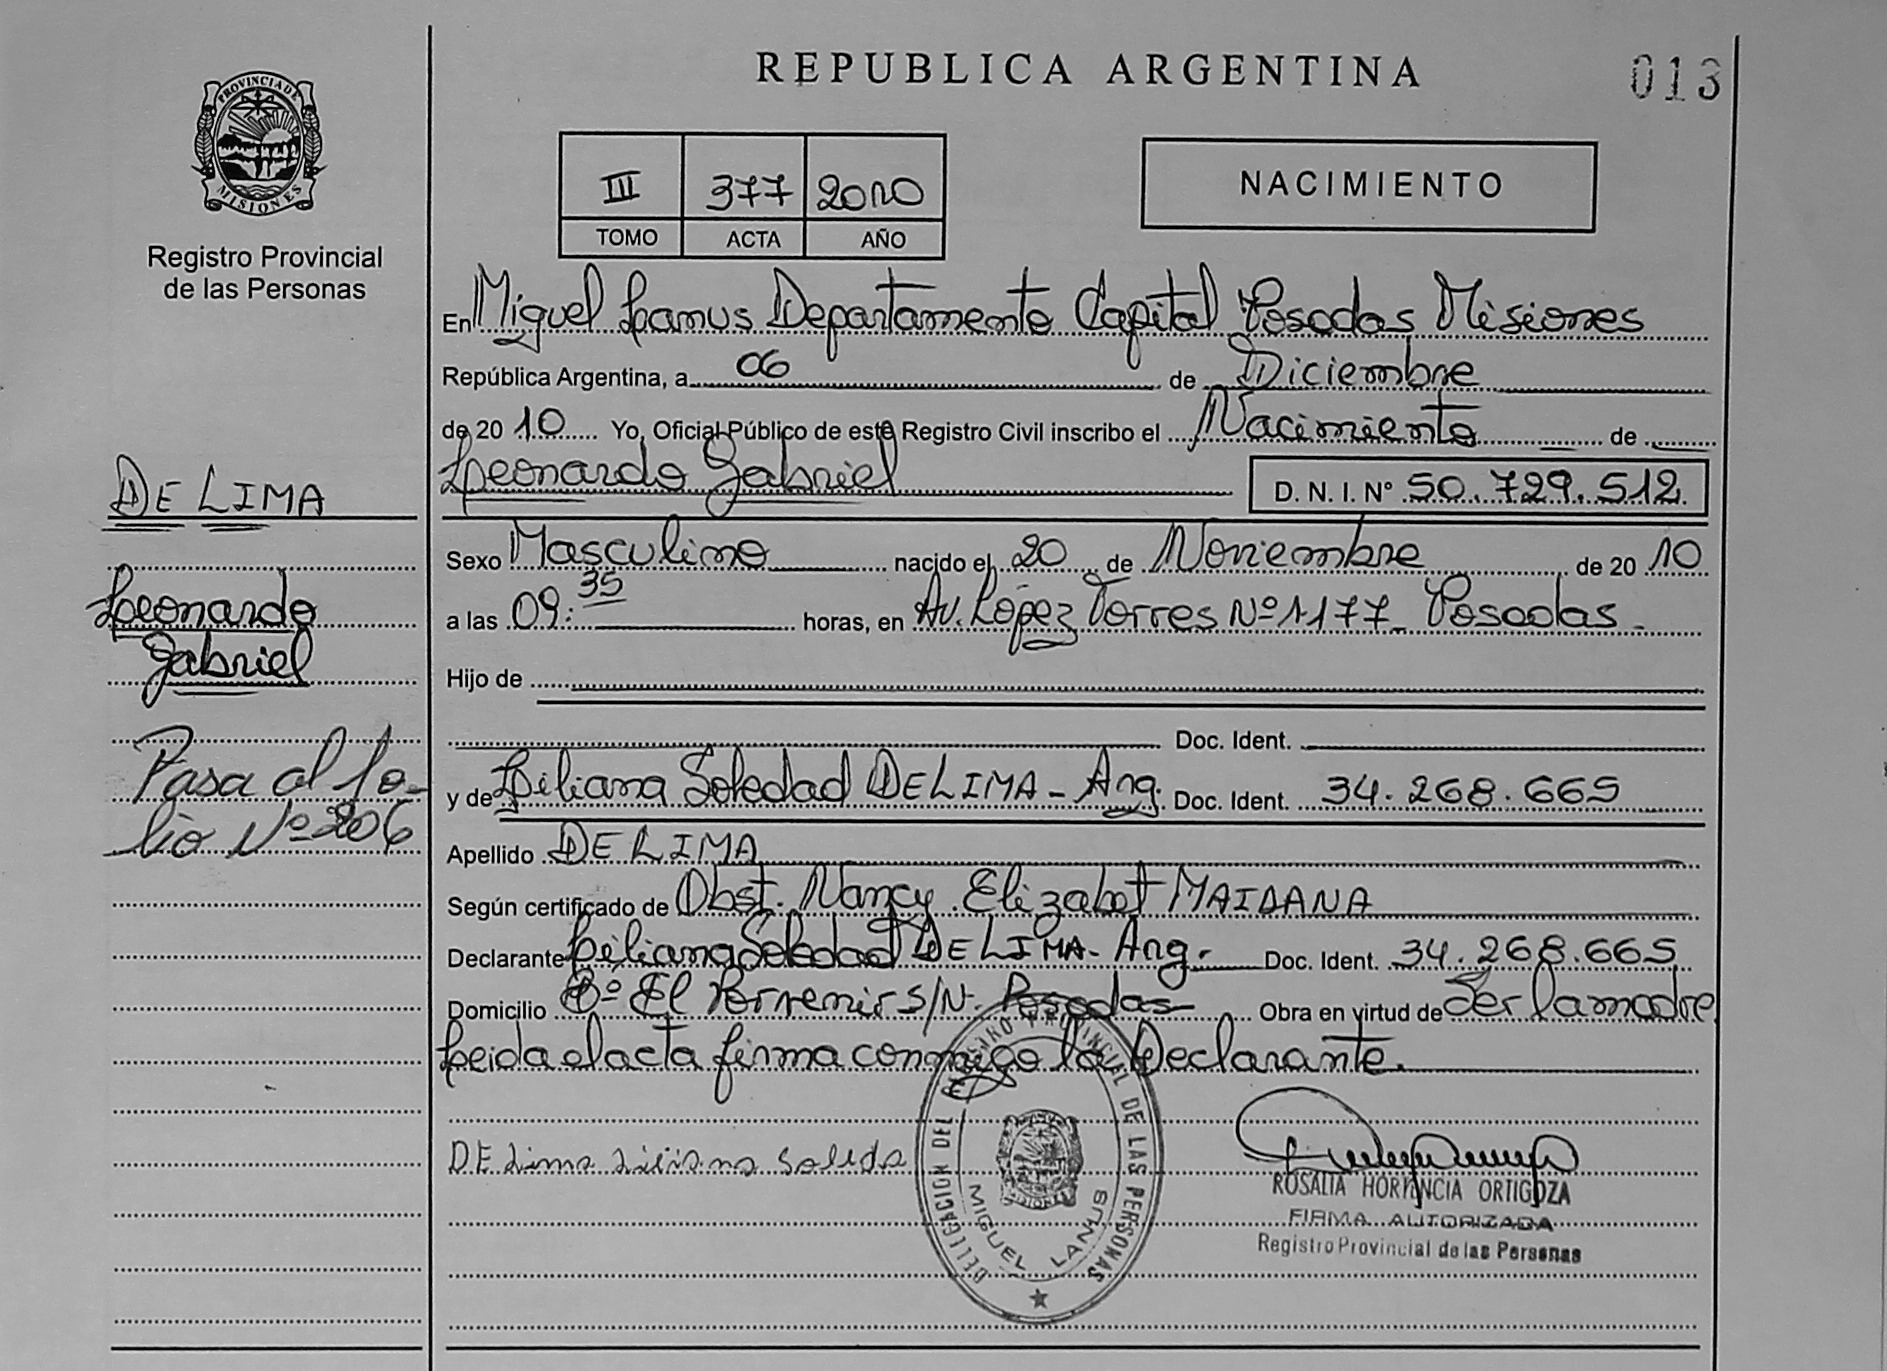 REPUBLICA ARGENTINA
013
PROVINCIA DE MISIONES
Registro Provincial
de las Personas
III 377 2010
TOMO ACTA AÑO
NACIMIENTO
En Miguel Lanus Departamento Capital Posadas Misiones
República Argentina, a 06 de Diciembre
de 2010 Yo, Oficial Público de este Registro Civil inscribo el Nacimiento de
Leonardo Gabriel D. N. I. Nº 50.729.512
DE LIMA
Leonardo
Gabriel
Pasa al fo-
lio Nº 206
Sexo Masculino nacido el 20 de Noviembre de 2010
a las 09:35 horas, en Av. López Torres Nº 1177 Posadas.
Hijo de
Doc. Ident.
y de Liliana Soledad DE LIMA - Arg. Doc. Ident. 34.268.665
Apellido DE LIMA
Según certificado de Obst. Nancy Elizabet MAIDANA
Declarante Liliana Soledad DE LIMA - Arg. Doc. Ident. 34.268.665
Domicilio Bº El Porvenir S/N. Posadas Obra en virtud de Ser la madre
Leida el acta firma conmigo la Declarante.
DELEGACION DEL REGISTRO PROVINCIAL DE LAS PERSONAS
MISIONES
MIGUEL LANUS
DE Lima Liliana Soleda
ROSALIA HORTENCIA ORTIGOZA
FIRMA AUTORIZADA
Registro Provincial de las Personas